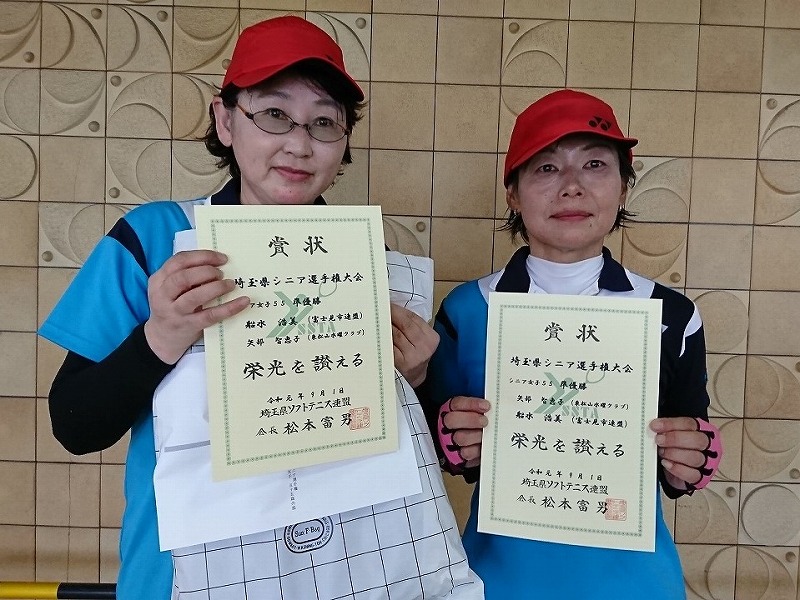 賞状
埼玉県シニア選手権大会
シニア女子55 準優勝
船水 浩美 (富士見市連盟)
矢部 智恵子 (東松山水曜クラブ)
栄光を讃える
令和元年9月1日
埼玉県ソフトテニス連盟
会長 松本富男
SSTA
Sun F·Bag
賞状
埼玉県シニア選手権大会
シニア女子55 準優勝
矢部 智恵子 (東松山水曜クラブ)
船水 浩美 (富士見市連盟)
栄光を讃える
令和元年9月1日
埼玉県ソフトテニス連盟
会長 松本富男
SSTA